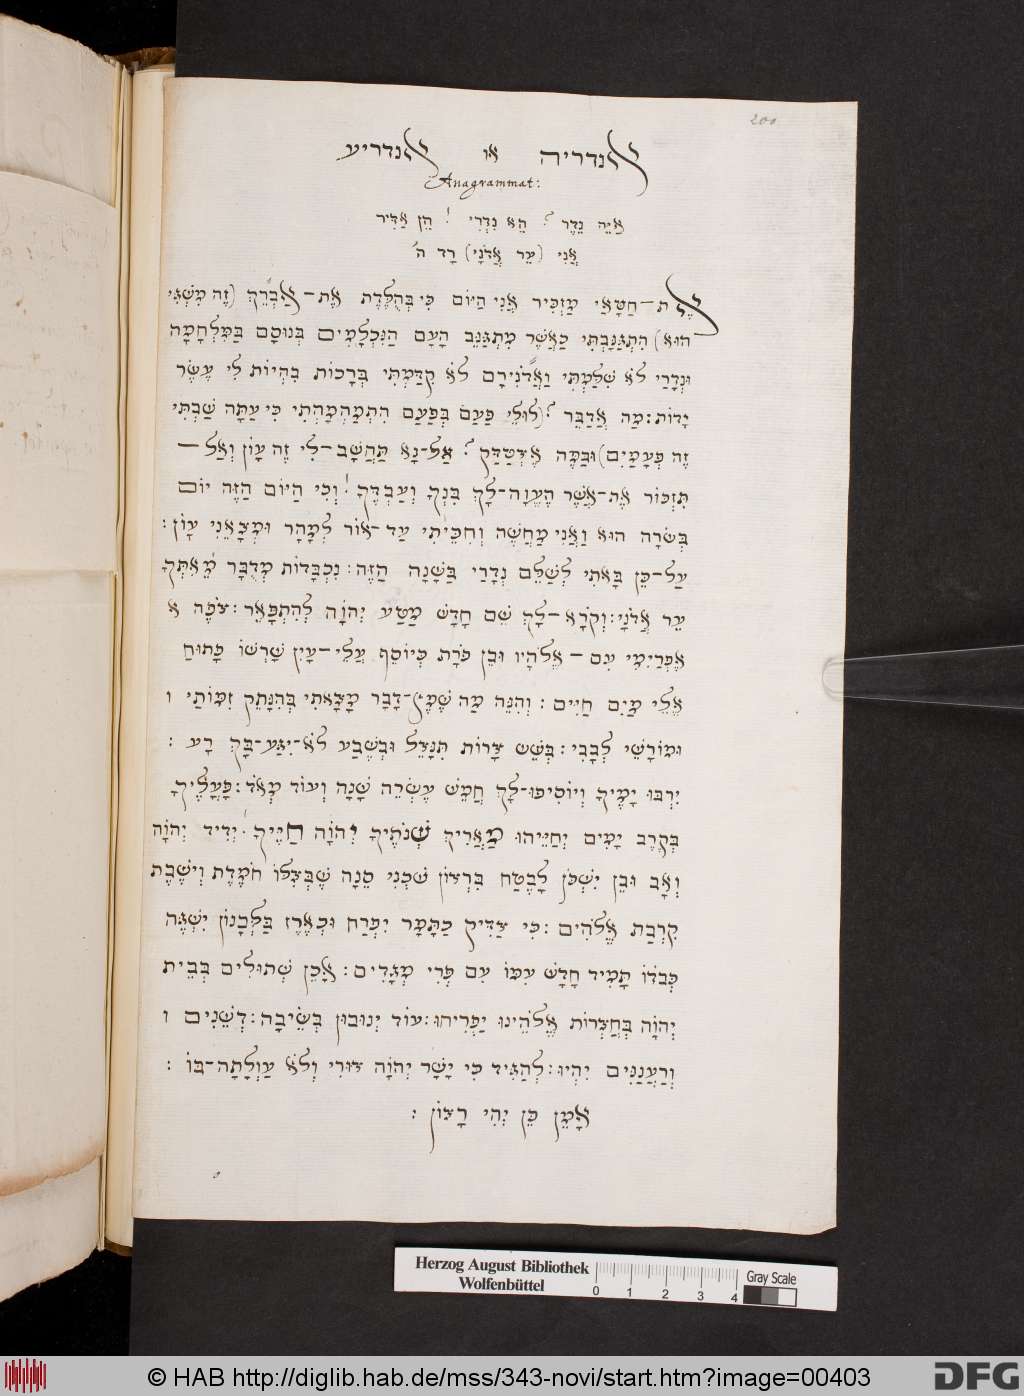 200
אנדריה או אנדריע
Anagrammat:
אַיֵּה נֵדֶר ? הֵא נִדְרִי ! הֵן אַדִּיר
אֲנִי (עֵר אֲדֹנָי) רָד ה'
אֶת־חַטָּאַי מַזְכִּיר אֲנִי הַיּוֹם כִּי בְּהֻלֶּדֶת אֶת־אַבְרֵךְ (זֶה
הוּא) הִתְגַּנַּבְתִּי כַּאֲשֶׁר מִתְגַּנֵּב הָעָם הַנִּכְלָמִים בְּנוּסָם בַּמִּלְחָמָה
וּנְדָרַי לֹא שִׁלַּמְתִּי לֹא קִדַּמְתִּי בְּרָכוֹת בִּהְיוֹת לִי עֶשֶׂר
יָדוֹת : מַה אֲדַבֵּר ? (לוּלֵי פַּעַם בְּפַעַם הִתְמַהְמָהְתִּי כִּי עַתָּה שַׁבְתִּי
זֶה פַּעֲמַיִם) וּבַמֶּה אֶצְטַדַּק ? אַל־נָא תַּחֲשָׁב־לִי זֶה עָוֹן וְאַל־
תִּזְכּוֹר אֶת־אֲשֶׁר הֶעֱוָה־לָךְ בִּנְךָ וְעַבְדֶּךָ ! וְכִי הַיּוֹם הַזֶּה יוֹם
בְּשֹׂרָה הוּא וַאֲנִי מַחֲשֶׁה וְחִכִּיתִי עַד־אוֹר לְמָהָר וּמְצָאֵנִי עָוֹן :
עַל־כֵּן בָּאתִי לְשַׁלֵּם נְדָרַי בַּשָּׁנָה הַזֶּה : נִכְבָּדוֹת מְדֻבָּר מֵאִתְּךָ
עֵר אֲדֹנָי : וְקֹרָא־לָךְ שֵׁם חָדָשׁ מַטַּע יְהוָֹה לְהִתְפָּאֵר : צֹפֶה א
אֶפְרַיִמִי עִם־אֱלֹהָיו וּבֵן פֹּרָת כְּיוֹסֵף עֲלֵי־עָיִן שָׁרְשׁוֹ פָּתוּחַ
אֱלֵי מַיִם חַיִּים : וְהִנֵּה מַה שֵּׁמֶץ־דָּבָר מָצָאתִי בְּהִנָּתֵק זִמּוֹתַי ו
וּמוֹרָשֵׁי לְבָבִי : בְּשֵׁשׁ צָרוֹת תִּנָּצֵל וּבְשֶׁבַע לֹא־יִגַּע־בָּךְ רָע :
יִרְבּוּ יָמֶיךָ וְיוֹסִיפוּ־לָךְ חֲמֵשׁ עֶשְׂרֵה שָׁנָה וְעוֹד מְאֹד : פָּעֳלֶיךָ
בְּקֶרֶב יָמִים יְחַיֵּיהוּ מַאֲרִיךְ שְׁנֹתֶיךָ יְהוָֹה חַיֶּיךָ ! יְדִיד יְהוָֹה
וְאָב וּבֵן יִשְׁכֹּן לָבֶטַח בִּרְצוֹן שֹׁכְנִי סְנֶה שֶׁבְּצִלּוֹ חֹמֶדֶת וְיֹשֶׁבֶת
קִרְבַת אֱלֹהִים : כִּי צַדִּיק כַּתָּמָר יִפְרַח וּכְאֶרֶז בַּלְּבָנוֹן יִשְׂגֶּה
כְּבֹדוֹ תָּמִיד חָדָשׁ עִמּוֹ עִם פְּרִי מְגָדִים : אָכֵן שְׁתוּלִים בְּבֵית
יְהוָֹה בְּחַצְרוֹת אֱלֹהֵינוּ יַפְרִיחוּ : עוֹד יְנוּבוּן בְּשֵׂיבָה : דְּשֵׁנִים ו
וְרַעֲנַנִּים יִהְיוּ : לְהַגִּיד כִּי יָשָׁר יְהוָֹה צוּרִי וְלֹא עַוְלָתָה־בּוֹ :
אָמֵן כֵּן יְהִי רָצוֹן :
Herzog August Bibliothek
Wolfenbüttel
0 1 2 3 4
Gray Scale
© HAB http://diglib.hab.de/mss/343-novi/start.htm?image=00403
DFG